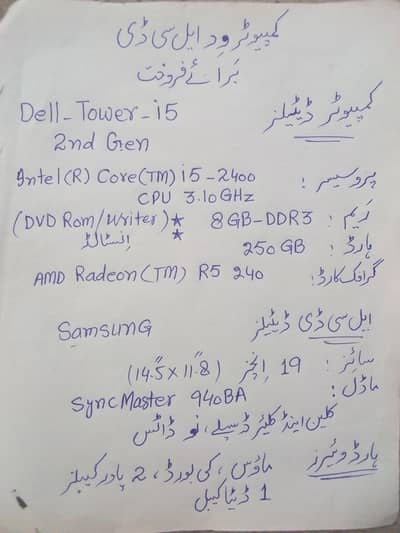 کمپیوٹر ود ایل سی ڈی
برائے فروخت
کمپیوٹر ڈیٹیلز Dell-Tower-i5
2nd Gen
پروسیسر: Intel(R) Core(TM) i5-2400
CPU 3.10GHz
ریم: 8GB-DDR3 ★ (DVD Rom/Writer)
ہارڈ: 250GB ★ انسٹالڈ
گرافک کارڈ: AMD Radeon(TM) R5 240
ایل سی ڈی ڈیٹیلز Samsung
سائز: 19 انچز (14.5"x11.8")
ماڈل: SyncMaster 940BA
کلین اینڈ کلیئر ڈسپلے، نو ڈاٹس
ہارڈ وئیرز ماؤس، کی بورڈ، 2 پاور کیبلز
1 ڈیٹا کیبل